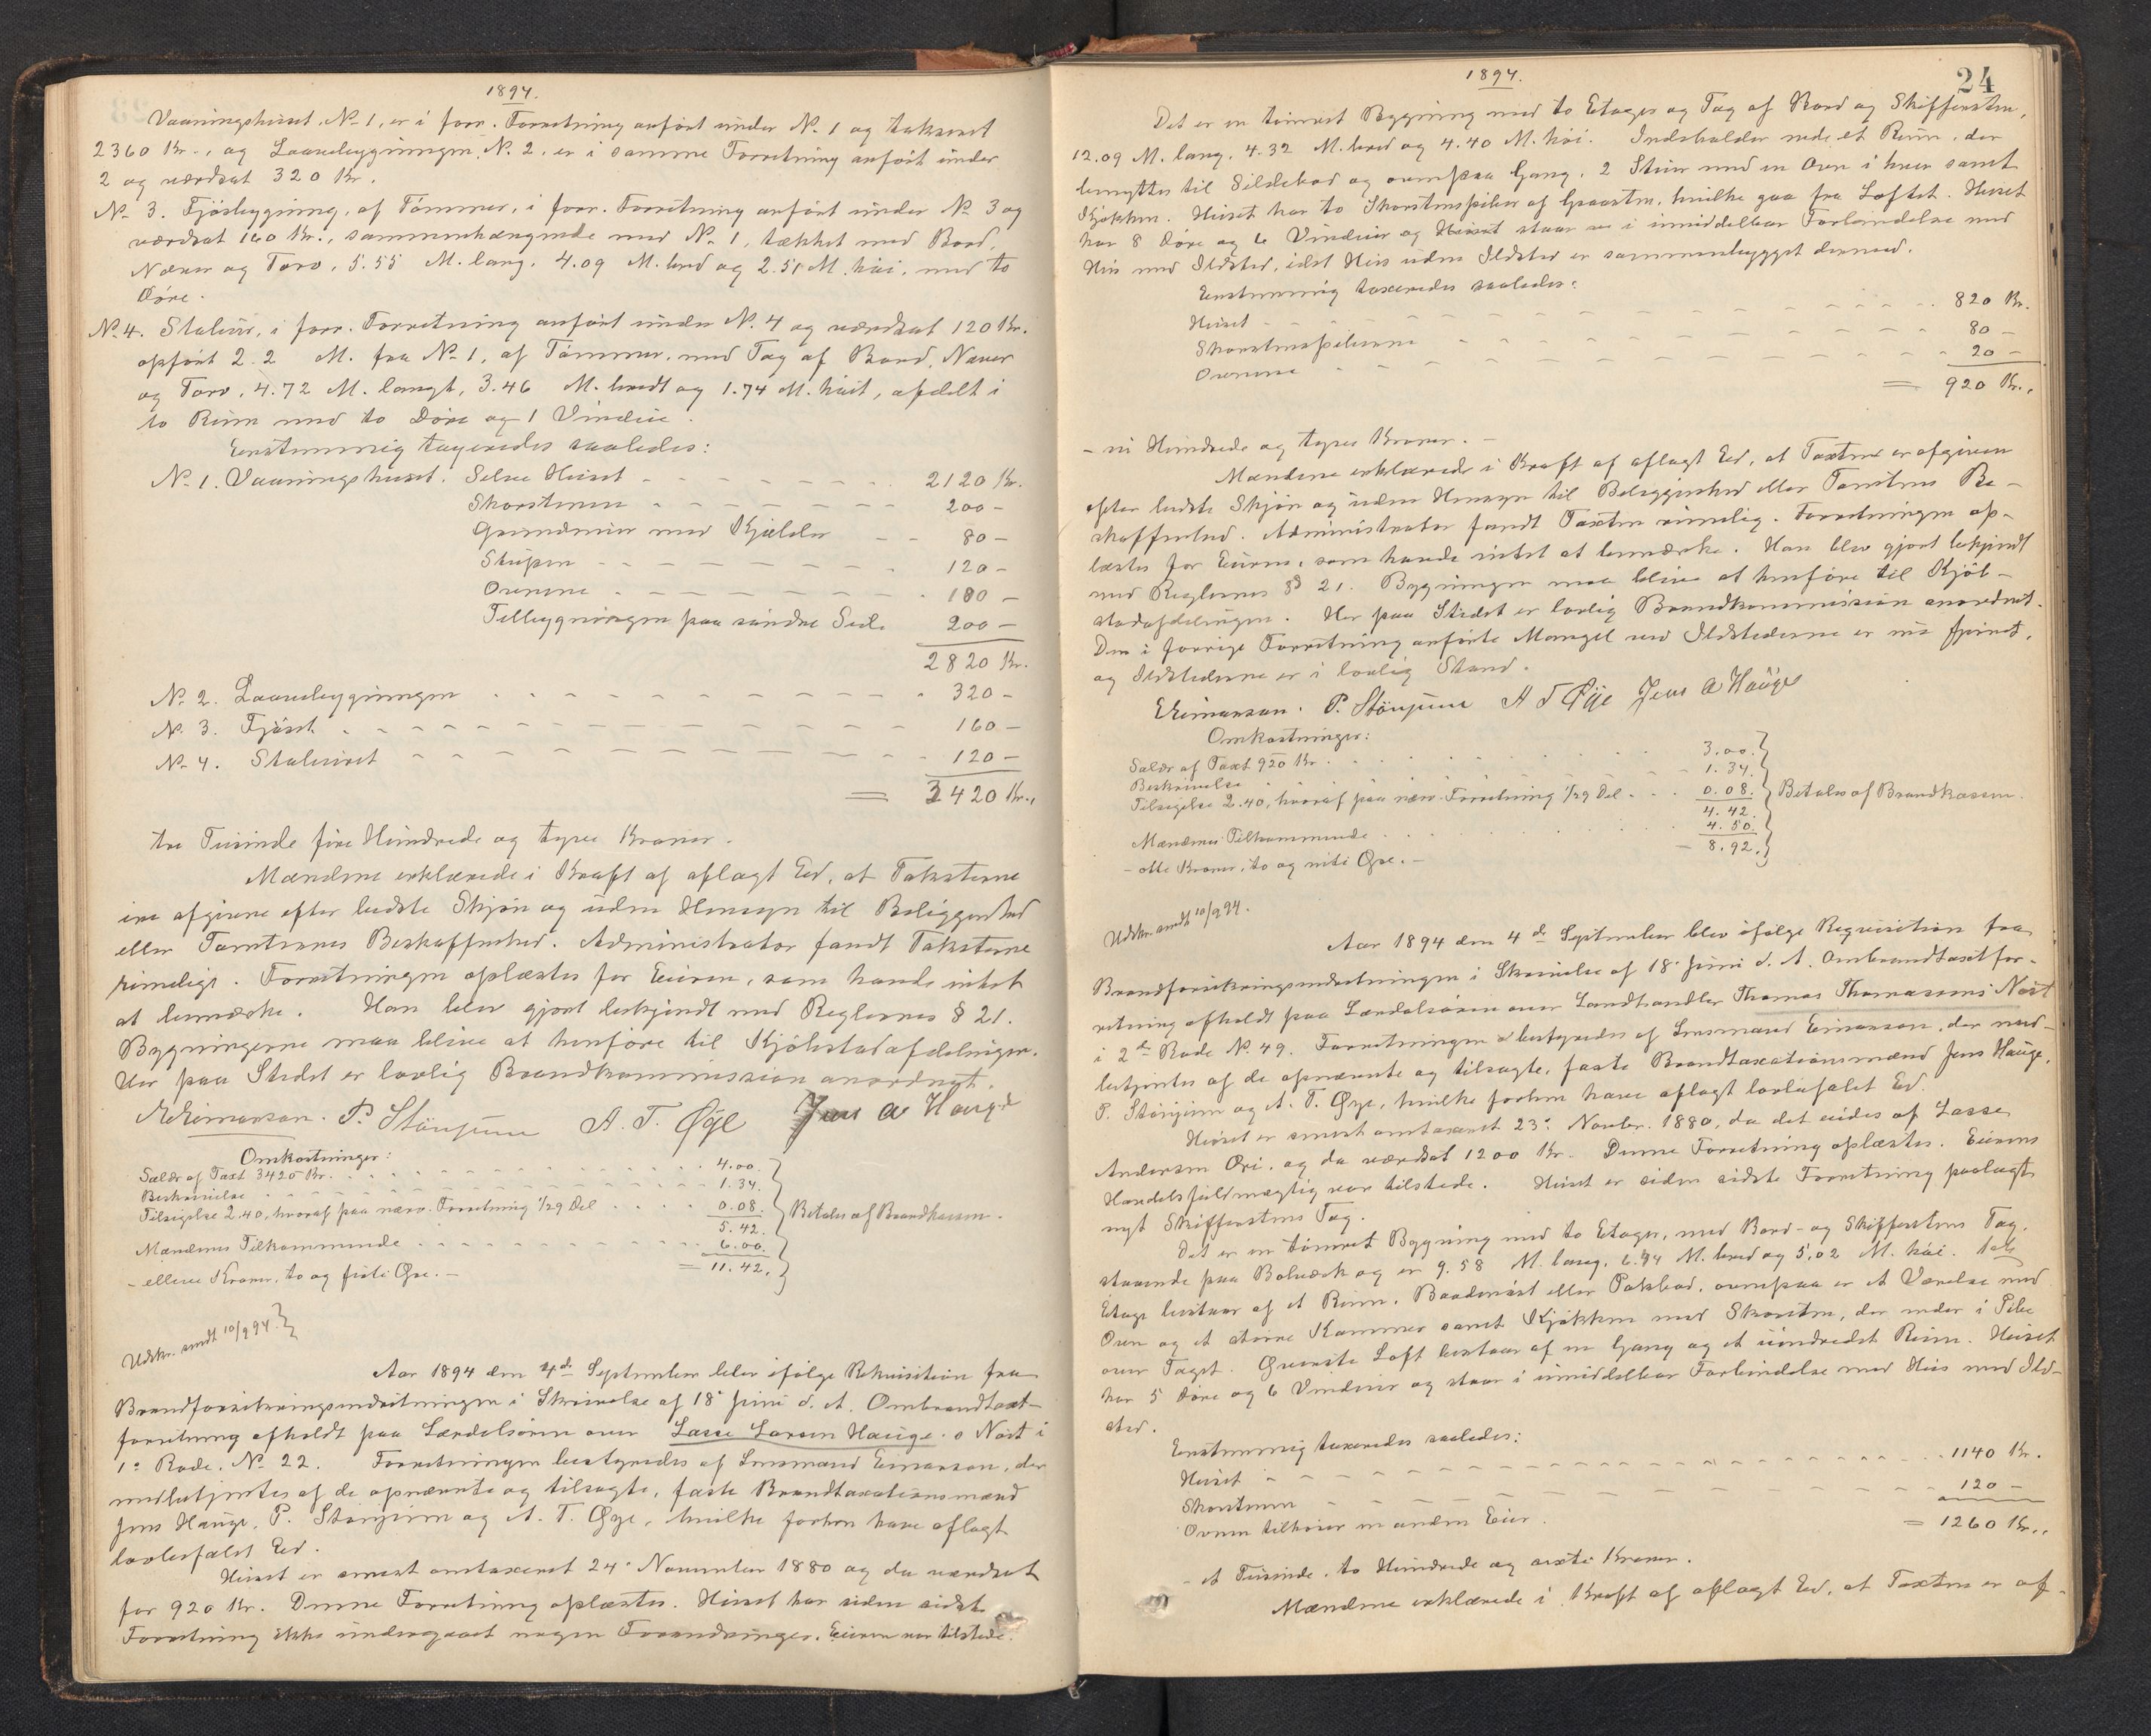 1894.
Vaaningshuset, No 1, er i forr. Forretning anført under No 1 og takseret
2360 Kr., og Laanebygningen, No. 2, er i samme Forretning anført under
2 og værdsat 320 Kr.
No 3. Fjøsbygning, af Tømmer, i forr. Forretning anført under No 3 og
værdsat 160 Kr., sammenhængende med No 1, tækket med Bord,
Næver og Torv, 5.55 M. lang, 4.09 M. bred og 2.51 M. høi, med to
Døre.
No 4. Stalhus, i forr. Forretning anført under No. 4 og værdsat 120 Kr.
opført 2.2 M. fra No 1, af Tømmer, med Tag af Bord, Næver
og Torv, 4.72 M. langt, 3.46 M. bredt og 1.74 M. høit, afdelt i
to Rum med to Døre og 1 Vindue.
Enstemmig taxeredes saaledes:
No 1. Vaaningshuset. Selve Huset 2120 Kr.
Skorstenen 200 –
Grundmur med Kjælder 80 –
Skupen 120 –
Ovnene 100 –
Tilbygningen paa søndre Side 200 –
2820 Kr.
No 2. Laanebygningen 320 –
No. 3. Fjøset 160 –
No 4. Stalhuset 120 –
= 3420 Kr.,
tre Tusinde fire Hundrede og tyve Kroner.
Mændene erklærede i Kraft af aflagt Ed, at Taksterne
ere afgivne efter bedste Skjøn og uden Hensyn til Beliggenhed
eller Tomternes Beskaffenhed. Administrator fandt Taksterne
rimelige. Forretningen oplæstes for Eieren, som havde intet
at bemærke. Han blev gjort bekjendt med Reglernes § 21.
Bygningerne maa blive at henføre til Kjøbstadafdelingen.
Her paa Stedet er lovlig Brandkommission anordnet.
Eeimansen. P. Stønjum A. T. Øye Jens A Hauge
Omkostninger:
Salær af Taxt 3420 Kr. 4.00.
Beskrivelse 1.34.
Tilsigelse 2.40, hvoraf paa nærv. Forretning 1/29 Del 0.08. Betales af Brandkassen.
5.42.
Mændenes Tilkommende 6.00.
– elleve Kroner, to og firti Øre. – = 11.42.
Udskr. sendt 10/9 94.
Aar 1894 den 4de September blev ifølge Rekvisition fra
Brandforsikringsindretningen i Skrivelse af 18' Juni d. A. Ombrandtaxt-
forretning afholdt paa Lærdalsøren over Lasse Larsen Hauges Nøst i
1' Rode, No 22. Forretningen bestyredes af Lensmand Eimansen, der
medbetjentes af de opnævnte og tilsagte, faste Brandtaxationsmænd
Jens Hauge, P. Stønjum og A. T. Øye, hvilke forhen have aflagt
lovbefalet Ed.
Huset er senest omtaxeret 24' November 1880 og da værdsat
for 920 Kr. Denne Forretning oplæstes. Huset har siden sidste
Forretning ikke undergaaet nogen Forandringer. Eieren var tilstede.
1894.
24
Det er en tømret Bygning med to Etager og Tag af Bord og Skiffersten,
12.09 M. lang, 4.32 M. bred og 4.40 M. høi. Indeholder nede et Rum, der
benyttes til Sildebod og ovenpaa Gang, 2 Stuer med en Ovn i hver samt
Kjøkken. Huset har to Skorstenspiber af Graasten, hvilke gaa fra Loftet. Huset
har 8 Døre og 6 Vinduer og Huset staar i umiddelbar Forbindelse med
Hus med Ildsted, idet Hus uden Ildsted er sammenbygget dermed.
Enstemmig taxeredes saaledes:
Huset 820 Kr.
Skorstenspiberne 80 –
Ovnene 20 –
= 920 Kr.,
– ni Hundrede og tyve Kroner. –
Mændene erklærede i Kraft af aflagt Ed, at Taxten er afgiven
efter bedste Skjøn og uden Hensyn til Beliggenhed eller Tomtens Be-
skaffenhed. Administrator fandt Taxten rimelig. Forretningen op-
læstes for Eieren, som havde intet at bemærke. Han blev gjort bekjendt
med Reglernes § 21. Bygningen maa blive at henføre til Kjøb-
stadafdelingen. Her paa Stedet er lovlig Brandkommission anordnet.
Den i forrige Forretning anførte Mangel ved Ildstederne er nu fjernet,
og Ildstederne er i lovlig Stand.
Eeimansen. P. Stønjum A T Øye Jens A Hauge
Omkostninger:
Salær af Taxt 920 Kr. 3.00.
Beskrivelse 1.34.
Tilsigelse 2.40, hvoraf paa nærv. Forretning 1/29 Del 0.08. Betales af Brandkassen.
4.42.
Mændenes Tilkommende 4.50.
– otte Kroner, to og niti Øre. – – 8.92.
Udskr. sendt 10/9 94.
Aar 1894 den 4de September blev ifølge Requisition fra
Brandforsikringsindretningen i Skrivelse af 18' Juni d. A. Ombrandtaxtfor-
retning afholdt paa Lærdalsøren over Landhandler Thomas Thomassens Nøst
i 2den Rode No. 49. Forretningen bestyredes af Lensmand Eimansen, der med-
betjentes af de opnævnte og tilsagte, faste Brandtaxationsmænd Jens Hauge,
P. Stønjum og A. T. Øye, hvilke forhen have aflagt lovbefalet Ed.
Huset er senest omtaxeret 23' Novbr. 1880, da det eiedes af Lasse
Andersen Øri, og da værdsat 1200 Kr. Denne Forretning oplæstes. Eierens
Handelsfuldmægtig var tilstede. Huset er siden sidste Forretning paalagt
nyt Skifferstens Tag.
Det er en tømret Bygning med to Etager, med Bord- og Skifferstens Tag,
staaende paa Bolværk og er 9.58 M. lang, 6.94 M. bred og 5.02 M. høi. 1ste
Etage bestaar af et Rum, Baadenøst eller Pakbod, ovenpaa er et Værelse med
Ovn og et større Kammer samt Kjøkken med Skorsten, der ender i Pibe
over Taget. Øverste Loft bestaar af en Gang og et uindredet Rum. Huset
har 5 Døre og 6 Vinduer og staar i umiddelbar Forbindelse med Hus med Ild-
sted.
Enstemmig taxeredes saaledes:
Huset 1140 Kr.
Skorstenen 120 –
Ovnen tilhører en anden Eier. = 1260 Kr.,
– et Tusinde, to Hundrede og sexti Kroner.
Mændene erklærede i Kraft af aflagt Ed, at Taxten er af-